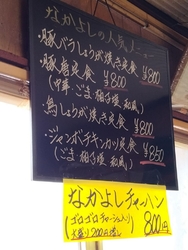 なかよしの人気メニュー
・豚バラしょうが焼き定食 ¥800
・豚唐定食 ¥800
ごま 柚子胡椒 和風)
・鳥しょうが焼き定食 ¥800
・ジャンボチキンカツ定食 ¥850
ごま 柚子胡椒 和風)
なかよしチャーハン
(ゴロゴロチャーシュー入り) 800円
大盛り200円増し